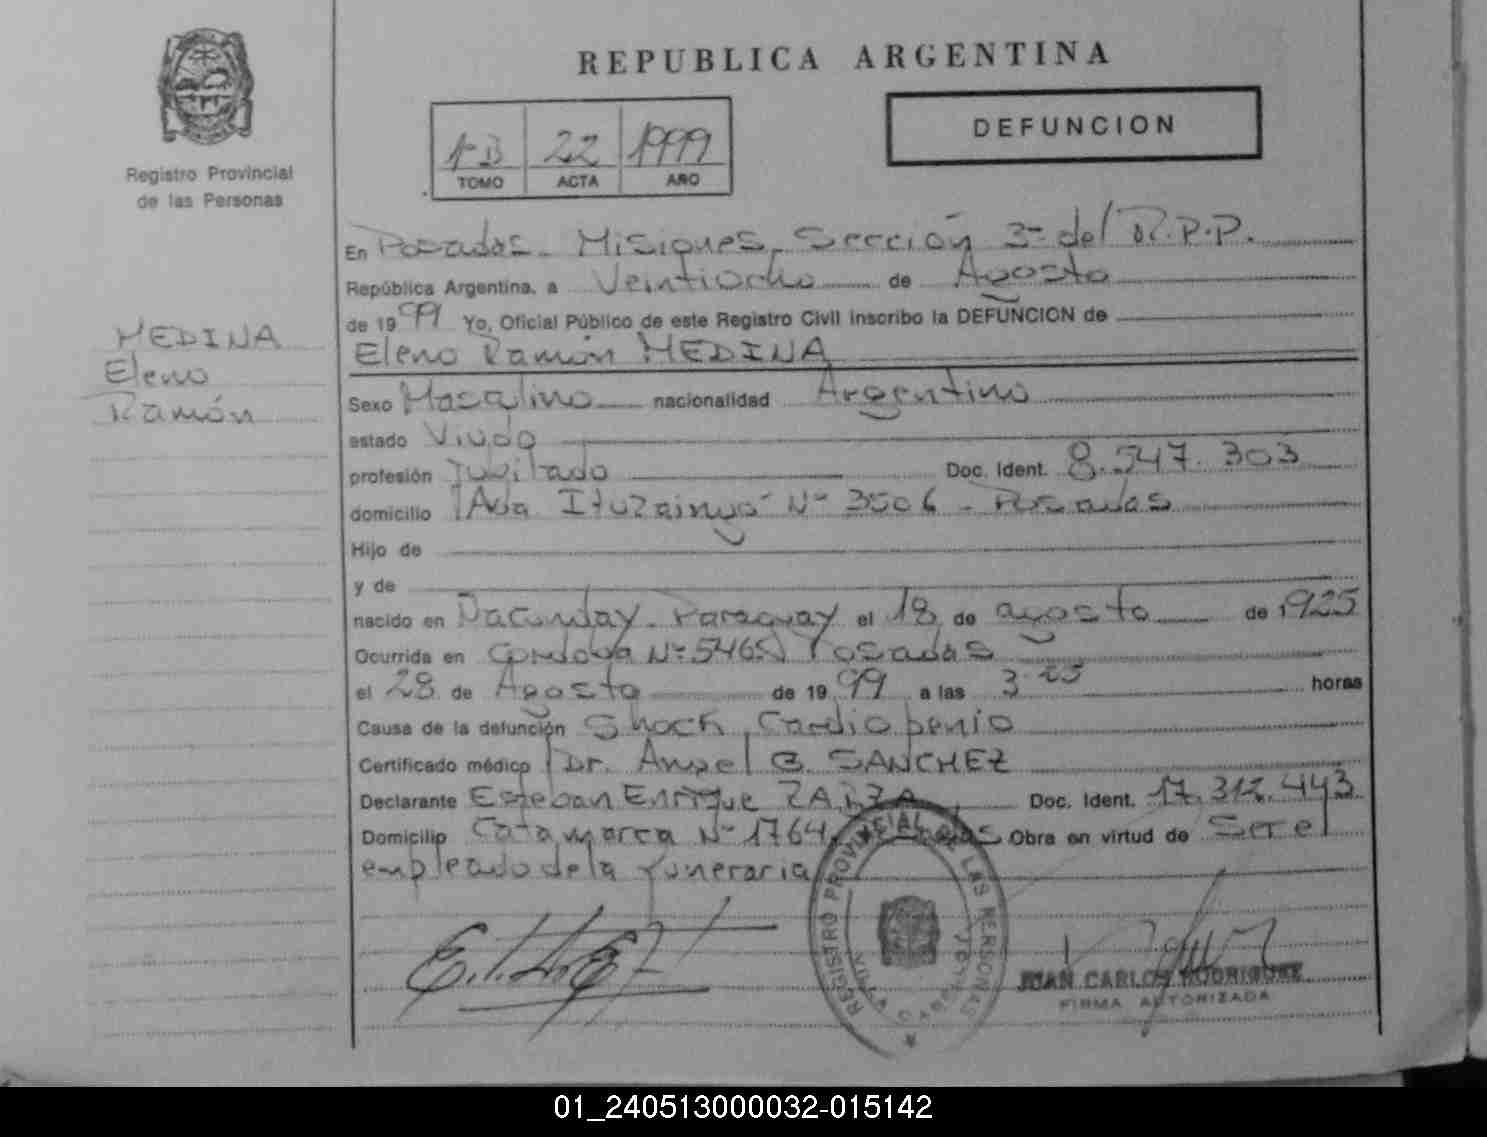 REPUBLICA ARGENTINA
Registro Provincial
de las Personas
1-B 22 1999
TOMO ACTA AÑO
DEFUNCION
En Posadas - Misiones, Sección 3ª del R.P.P.
República Argentina, a Veintiocho de Agosto
de 1999 Yo, Oficial Público de este Registro Civil inscribo la DEFUNCION de
Eleno Ramón MEDINA
MEDINA
Eleno
Ramón
Sexo Masculino nacionalidad Argentino
estado Viudo
profesión Jubilado Doc. Ident. 8.547.303
domicilio Avda Ituzaingó Nº 3506 - Posadas
Hijo de
y de
nacido en Ñacunday - Paraguay el 18 de agosto de 1925
Ocurrida en Cordoba Nº 5465 Posadas
el 28 de Agosto de 1999 a las horas
Causa de la defunción Shock Cardiogenio
Certificado médico Dr. Angel G. SANCHEZ
Declarante Esteban Enrique Doc. Ident. 17.312.443
Domicilio Catamarca Nº 1764, Obra en virtud de Ser el
empleado de la funeraria
REGISTRO PROVINCIAL DE LAS PERSONAS
JUAN CARLOS RODRIGUEZ
FIRMA AUTORIZADA
01_240513000032-015142